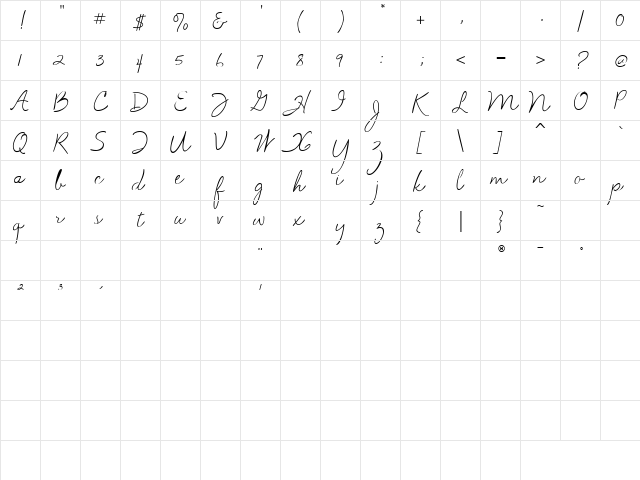 ! " # $ % & ' ( ) * + , - . / 0
1 2 3 4 5 6 7 8 9 : ; < = > ? @
A B C D E F G H I J K L M N O P
Q R S T U V W X Y Z [ \ ] ^ `
a b c d e f g h i j k l m n o p
q r s t u v w x y z { | } ~
¨ ® ¯ °
² ³ ´ ¹